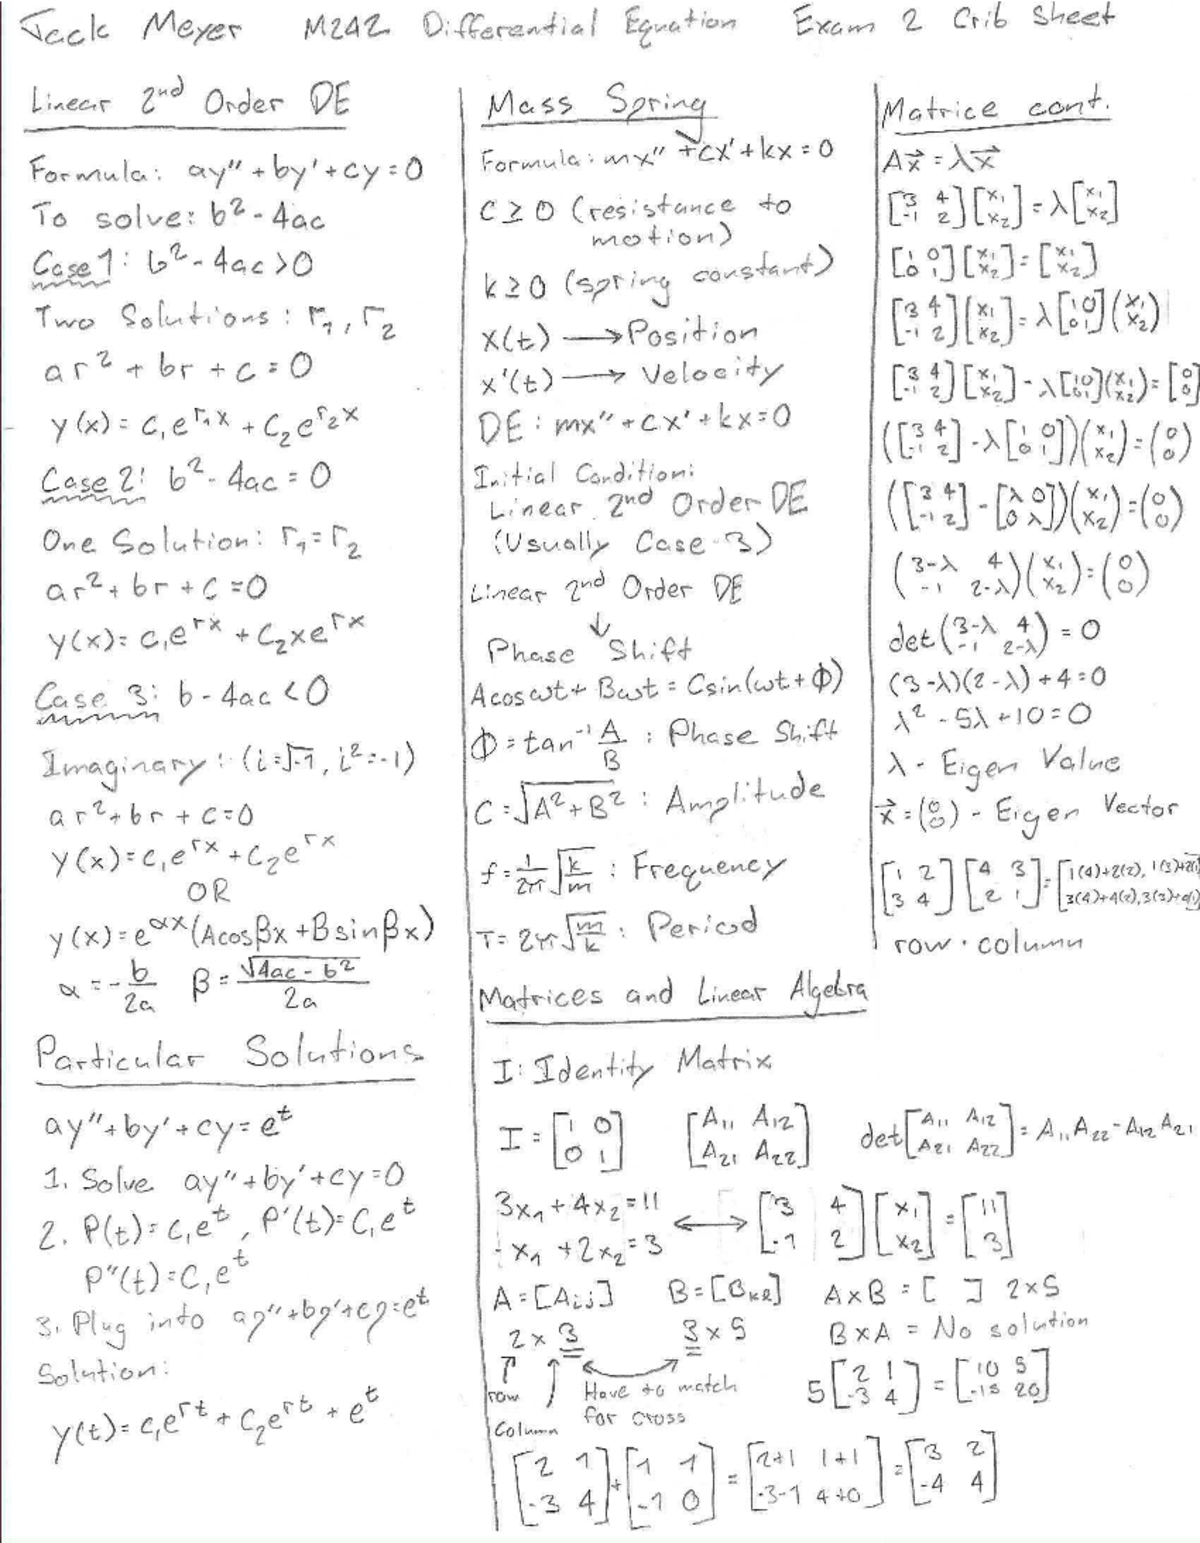 Jack Meyer M242 Differential Equation Exam 2 Crib Sheet
Linear 2nd Order DE
Formula: ay'' + by' + cy = 0
To solve: b² - 4ac
Case 1: b² - 4ac > 0
Two Solutions: r₁, r₂
ar² + br + c = 0
y(x) = c₁e^{r₁x} + c₂e^{r₂x}
Case 2: b² - 4ac = 0
One Solution: r₁ = r₂
ar² + br + c = 0
y(x) = c₁e^{rx} + c₂xe^{rx}
Case 3: b - 4ac < 0
Imaginary: (i = √-1, i² = -1)
ar² + br + c = 0
y(x) = c₁e^{rx} + c₂e^{rx}
OR
y(x) = e^{αx}(Acosβx + Bsinβx)
α = -b/2a β = √(4ac - b²)/2a
Particular Solutions
ay'' + by' + cy = e^t
1. Solve ay'' + by' + cy = 0
2. P(t) = c₁e^t, P'(t) = C₁e^t
P''(t) = C₁e^t
3. Plug into ay'' + by' + cy = e^t
Solution:
y(t) = c₁e^{rt} + c₂e^{rt} + e^t
Mass Spring
Formula: mx'' + cx' + kx = 0
C ≥ 0 (resistance to
motion)
k ≥ 0 (spring constant)
x(t) → Position
x'(t) → Velocity
DE: mx'' + cx' + kx = 0
Initial Condition:
Linear 2nd Order DE
(Usually Case 3)
Linear 2nd Order DE
↓
Phase Shift
Acosωt + Bωt = Csin(ωt + Φ)
Φ = tan⁻¹ A/B : Phase Shift
C = √(A² + B²) : Amplitude
f = 1/2π √(k/m) : Frequency
T = 2π √(m/k) : Period
Matrices and Linear Algebra
I: Identity Matrix
I = [1 0; 0 1] [A₁₁ A₁₂; A₂₁ A₂₂] det[A₁₁ A₁₂; A₂₁ A₂₂] = A₁₁A₂₂ - A₁₂A₂₁
3x₁ + 4x₂ = 11
-x₁ + 2x₂ = 3 ↔ [3 4; -1 2][x₁; x₂] = [11; 3]
A = [Aij] B = [Bkl] A x B = [ ] 2x5
2 x 3 3 x 5 B x A = No solution
row Have to match
Column for cross
5[2 1; -3 4] = [10 5; -15 20]
[2 1; -3 4] + [1 1; -1 0] = [2+1 1+1; -3-1 4+0] = [3 2; -4 4]
Matrice cont.
Ax⃗ = λx⃗
[3 4; -1 2][x₁; x₂] = λ[x₁; x₂]
[1 0; 0 1][x₁; x₂] = [x₁; x₂]
[3 4; -1 2][x₁; x₂] = λ[1 0; 0 1](x₁; x₂)
[3 4; -1 2][x₁; x₂] - λ[1 0; 0 1](x₁; x₂) = [0; 0]
([3 4; -1 2] - λ[1 0; 0 1])(x₁; x₂) = (0; 0)
([3 4; -1 2] - [λ 0; 0 λ])(x₁; x₂) = (0; 0)
(3-λ 4; -1 2-λ)(x₁; x₂) = (0; 0)
det(3-λ 4; -1 2-λ) = 0
(3-λ)(2-λ) + 4 = 0
λ² - 5λ + 10 = 0
λ - Eigen Value
x⃗ = (0; 0) - Eigen Vector
[1 2; 3 4][4 3; 2 1] = [1(4)+2(2), 1(3)+2(1); 3(4)+4(2), 3(3)+4(1)]
row · column